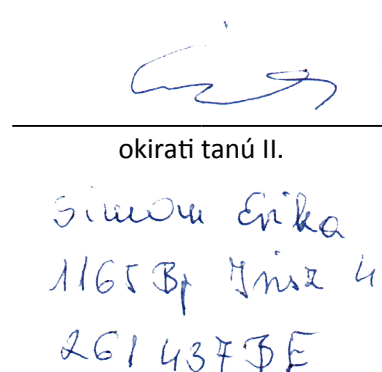 okirati tanú II.
Simon Erika
1165 Bp Írisz 4
261437BE